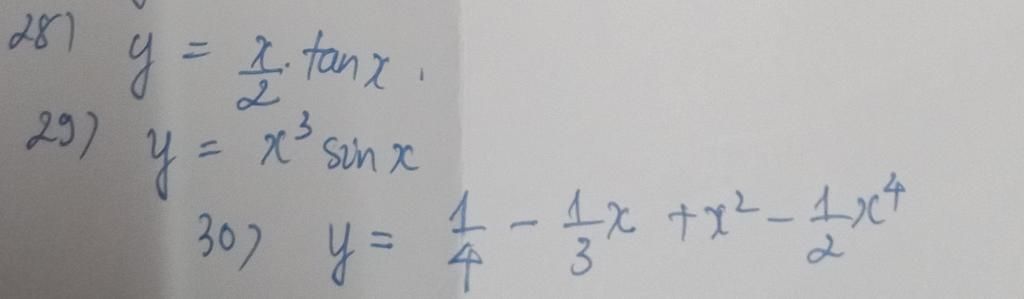 28) y = x/2 . tan x .
29) y = x³ sin x
30) y = 1/4 - 1/3 x + x² - 1/2 x⁴